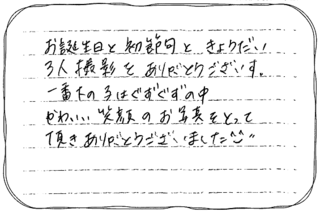 お誕生日と初節句ときょうだい
3人撮影をありがとうございます。
一番下の子はぐずぐずの中
かわいい笑顔のお写真をとって
頂きありがとうございました^^"